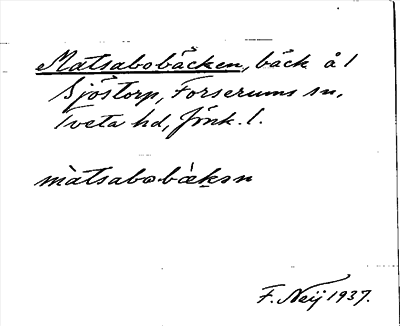 Matsabobäcken, bäck å 1
Sjöstorp, Forserums sn,
Tveta hd, Jönk. l.
màtsabobὰ̀kən
F. Neij 1937.